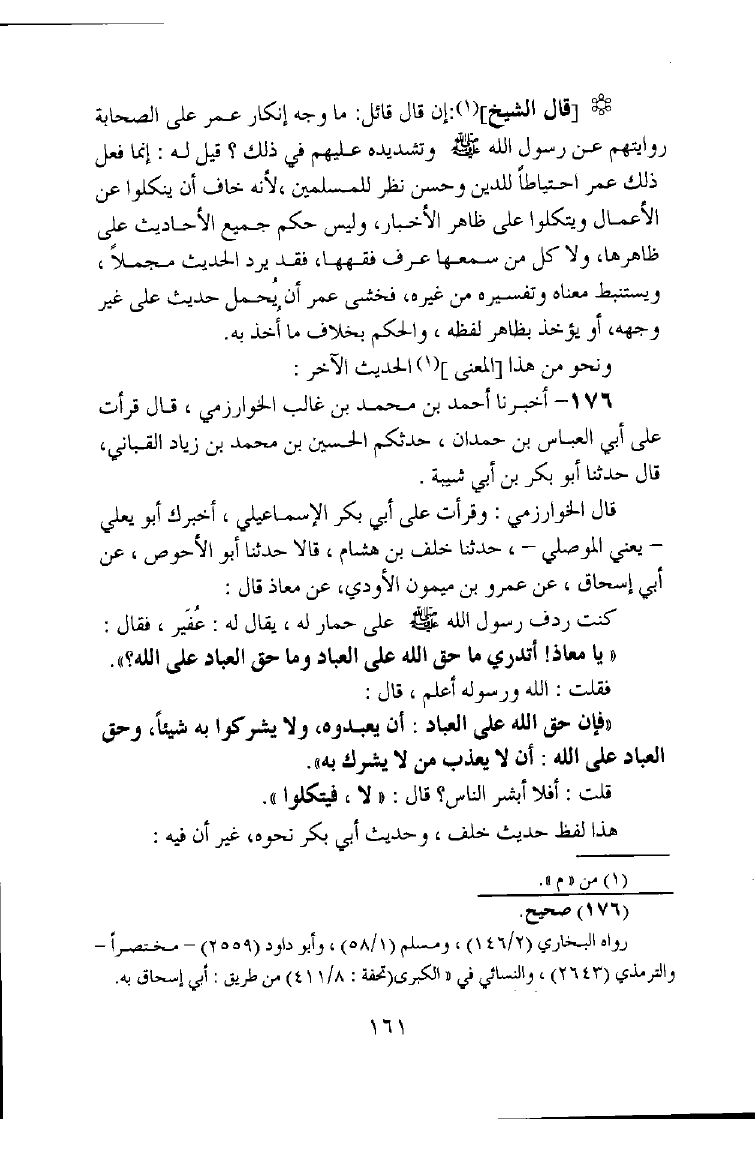 [قال الشيخ](١):إن قال قائل: ما وجه إنكار عمر على الصحابة
روايتهم عن رسول الله ﷺ وتشديده عليهم في ذلك ؟ قيل له : إنما فعل
ذلك عمر احتياطاً للدين وحسن نظر للمسلمين ،لأنه خاف أن ينكلوا عن
الأعمال ويتكلوا على ظاهر الأخبار، وليس حكم جميع الأحاديث على
ظاهرها، ولا كل من سمعها عرف فقهها، فقد يرد الحديث مجملاً ،
ويستنبط معناه وتفسيره من غيره، فخشى عمر أن يُحمل حديث على غير
وجهه، أو يؤخذ بظاهر لفظه ، والحكم بخلاف ما أخذ به.
ونحو من هذا [المعنى ](١) الحديث الآخر :
١٧٦– أخبرنا أحمد بن محمد بن غالب الخوارزمي ، قال قرأت
على أبي العباس بن حمدان ، حدثكم الحسين بن محمد بن زياد القباني،
قال حدثنا أبو بكر بن أبي شيبة .
قال الخوارزمي : وقرأت على أبي بكر الإسماعيلي ، أخبرك أبو يعلي
– يعني الموصلي – ، حدثنا خلف بن هشام ، قالا حدثنا أبو الأحوص ، عن
أبي إسحاق ، عن عمرو بن ميمون الأودي، عن معاذ قال :
كنت ردف رسول الله ﷺ على حمار له ، يقال له : عُفَير ، فقال :
« يا معاذ! أتدري ما حق الله على العباد وما حق العباد على الله؟».
فقلت : الله ورسوله أعلم ، قال :
«فإن حق الله على العباد : أن يعبدوه، ولا يشركوا به شيئاً، وحق
العباد على الله : أن لا يعذب من لا يشرك به».
قلت : أفلا أبشر الناس؟ قال : « لا ، فيتكلوا ».
هذا لفظ حديث خلف ، وحديث أبي بكر نحوه، غير أن فيه :
(١) من « م ».
(١٧٦) صحيح.
رواه البخاري (١٤٦/٢) ، ومسلم (٥٨/١) ، وأبو داود (٢٥٥٩) – مختصراً –
والترمذي (٢٦٤٣) ، والنسائي في « الكبرى(تحفة : ٤١١/٨) من طريق : أبي إسحاق به.
١٦١